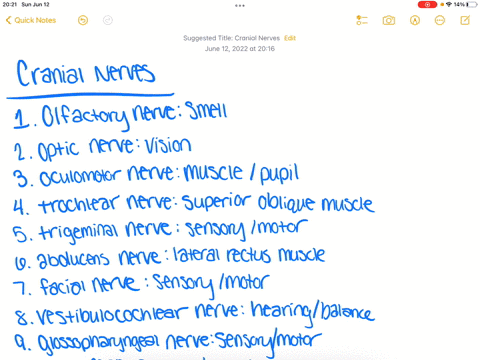 20:21 Sun Jun 12
14%
Quick Notes
Suggested Title: Cranial Nerves Edit
June 12, 2022 at 20:16
Cranial Nerves
1. Olfactory nerve: smell
2. optic nerve: vision
3. oculomotor nerve: muscle/pupil
4. trochlear nerve: superior oblique muscle
5. trigeminal nerve: sensory/motor
6. abducens nerve: lateral rectus muscle
7. facial nerve: sensory/motor
8. vestibulocochlear nerve: hearing/balance
9. glossopharyngeal nerve: sensory/motor